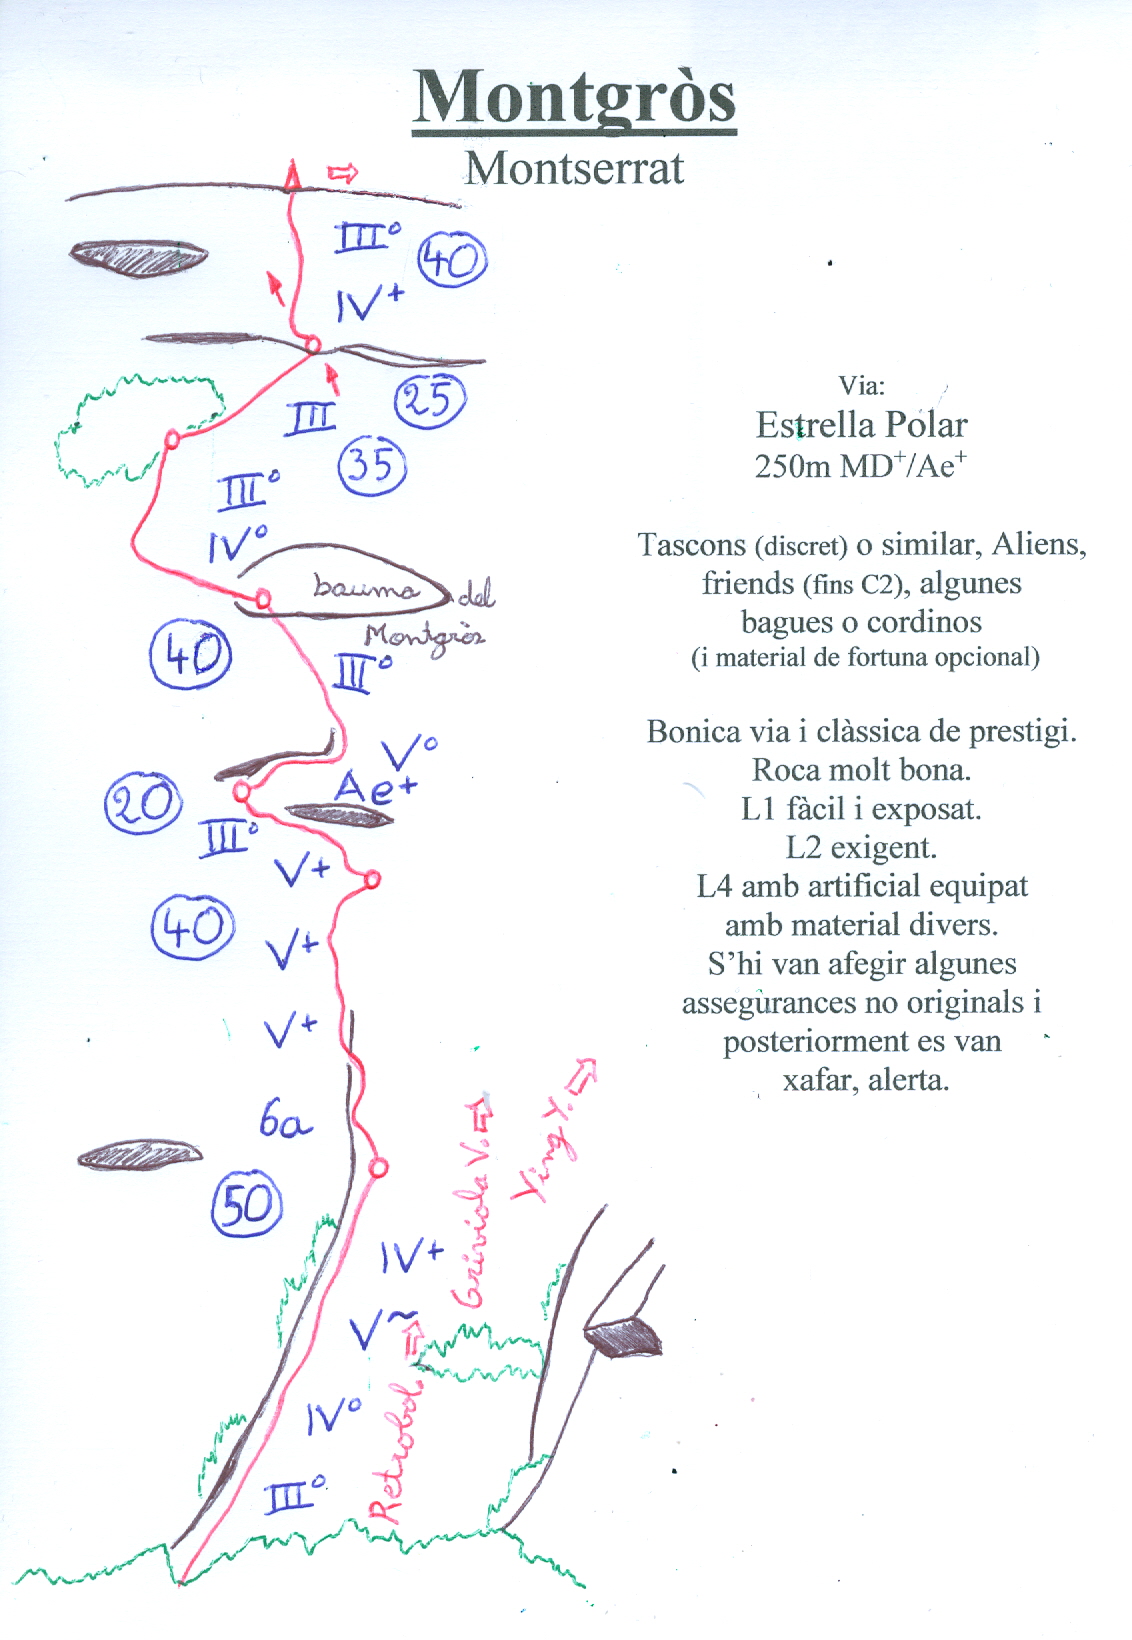 Montgròs
Montserrat
III°
40
IV+
25
III
35
III°
IV°
bauma del
Montgròs
40
III°
V°
Ae+
20
III°
V+
40
V+
V+
6a
50
IV+
V~
IV°
III°
Retrobol.
Griviola V.
Ying Y.
Via:
Estrella Polar
250m MD⁺/Ae⁺
Tascons (discret) o similar, Aliens,
friends (fins C2), algunes
bagues o cordinos
(i material de fortuna opcional)
Bonica via i clàssica de prestigi.
Roca molt bona.
L1 fàcil i exposat.
L2 exigent.
L4 amb artificial equipat
amb material divers.
S'hi van afegir algunes
assegurances no originals i
posteriorment es van
xafar, alerta.